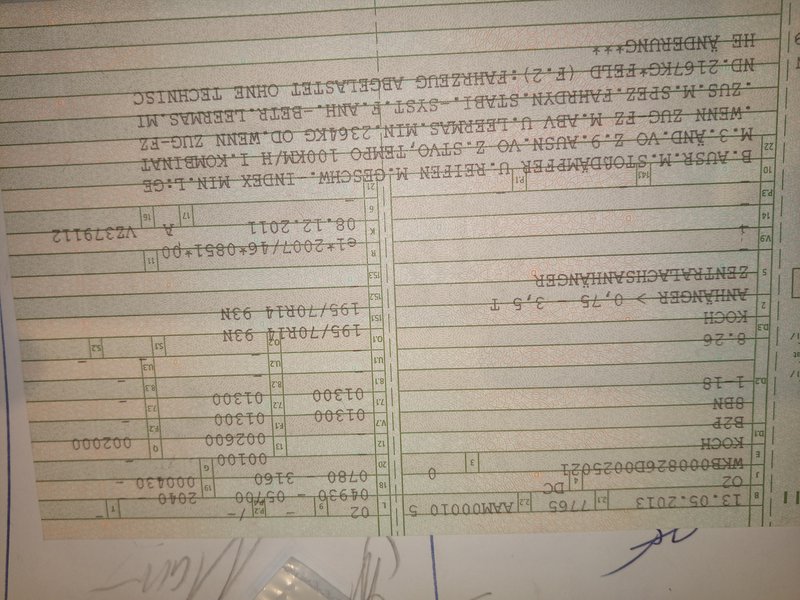 B 13.05.2013 2.1 7765 2.2 AAM00010 5
J O2 4 DC
E WKB000826D0025021 3 0
D.1 KOCH
B2P
8BN
D.2 1-18-1
8.26
D.3 KOCH
2 ANHÄNGER > 0,75 - 3,5 T
5 ZENTRALACHSANHÄNGER
V.9 -
14 -
P.3 -
10 - 14.1 - P.1 -
L 02 9 - P.2 -/- T -
18 04930 - 05700 19 2040 -
20 0780 - 3160 G 000430 -
12 - 13 00100 Q -
V.7 - F.1 002600 F.2 002000
7.1 01300 7.2 01300 7.3 -
8.1 01300 8.2 01300 8.3 -
U.1 - U.2 - U.3 -
O.1 - O.2 - S.1 - S.2 -
15.1 195/70R14 93N
15.2 195/70R14 93N
15.3 -
R -
K e1*2007/46*0851*00 11 -
6 08.12.2011 17 A 16 VZ379112
21 -
22 B.AUSR.M.STOßDÄMPFER U.REIFEN M.GESCHW.-INDEX MIN.L:GE
M.3.ÄND.VO Z.9.AUSN.VO Z.STVO,TEMPO 100KM/H I.KOMBINAT
.WENN ZUG-FZ M.ABV U.LEERMAS.MIN.2364KG OD.WENN ZUG-FZ
.ZUS.M.SPEZ.FAHRDYN.STABI.-SYST.F.ANH.-BETR.LEERMAS.MI
ND.2167KG*FELD (F.2):FAHRZEUG ABGELASTET OHNE TECHNISC
HE ÄNDERUNG***